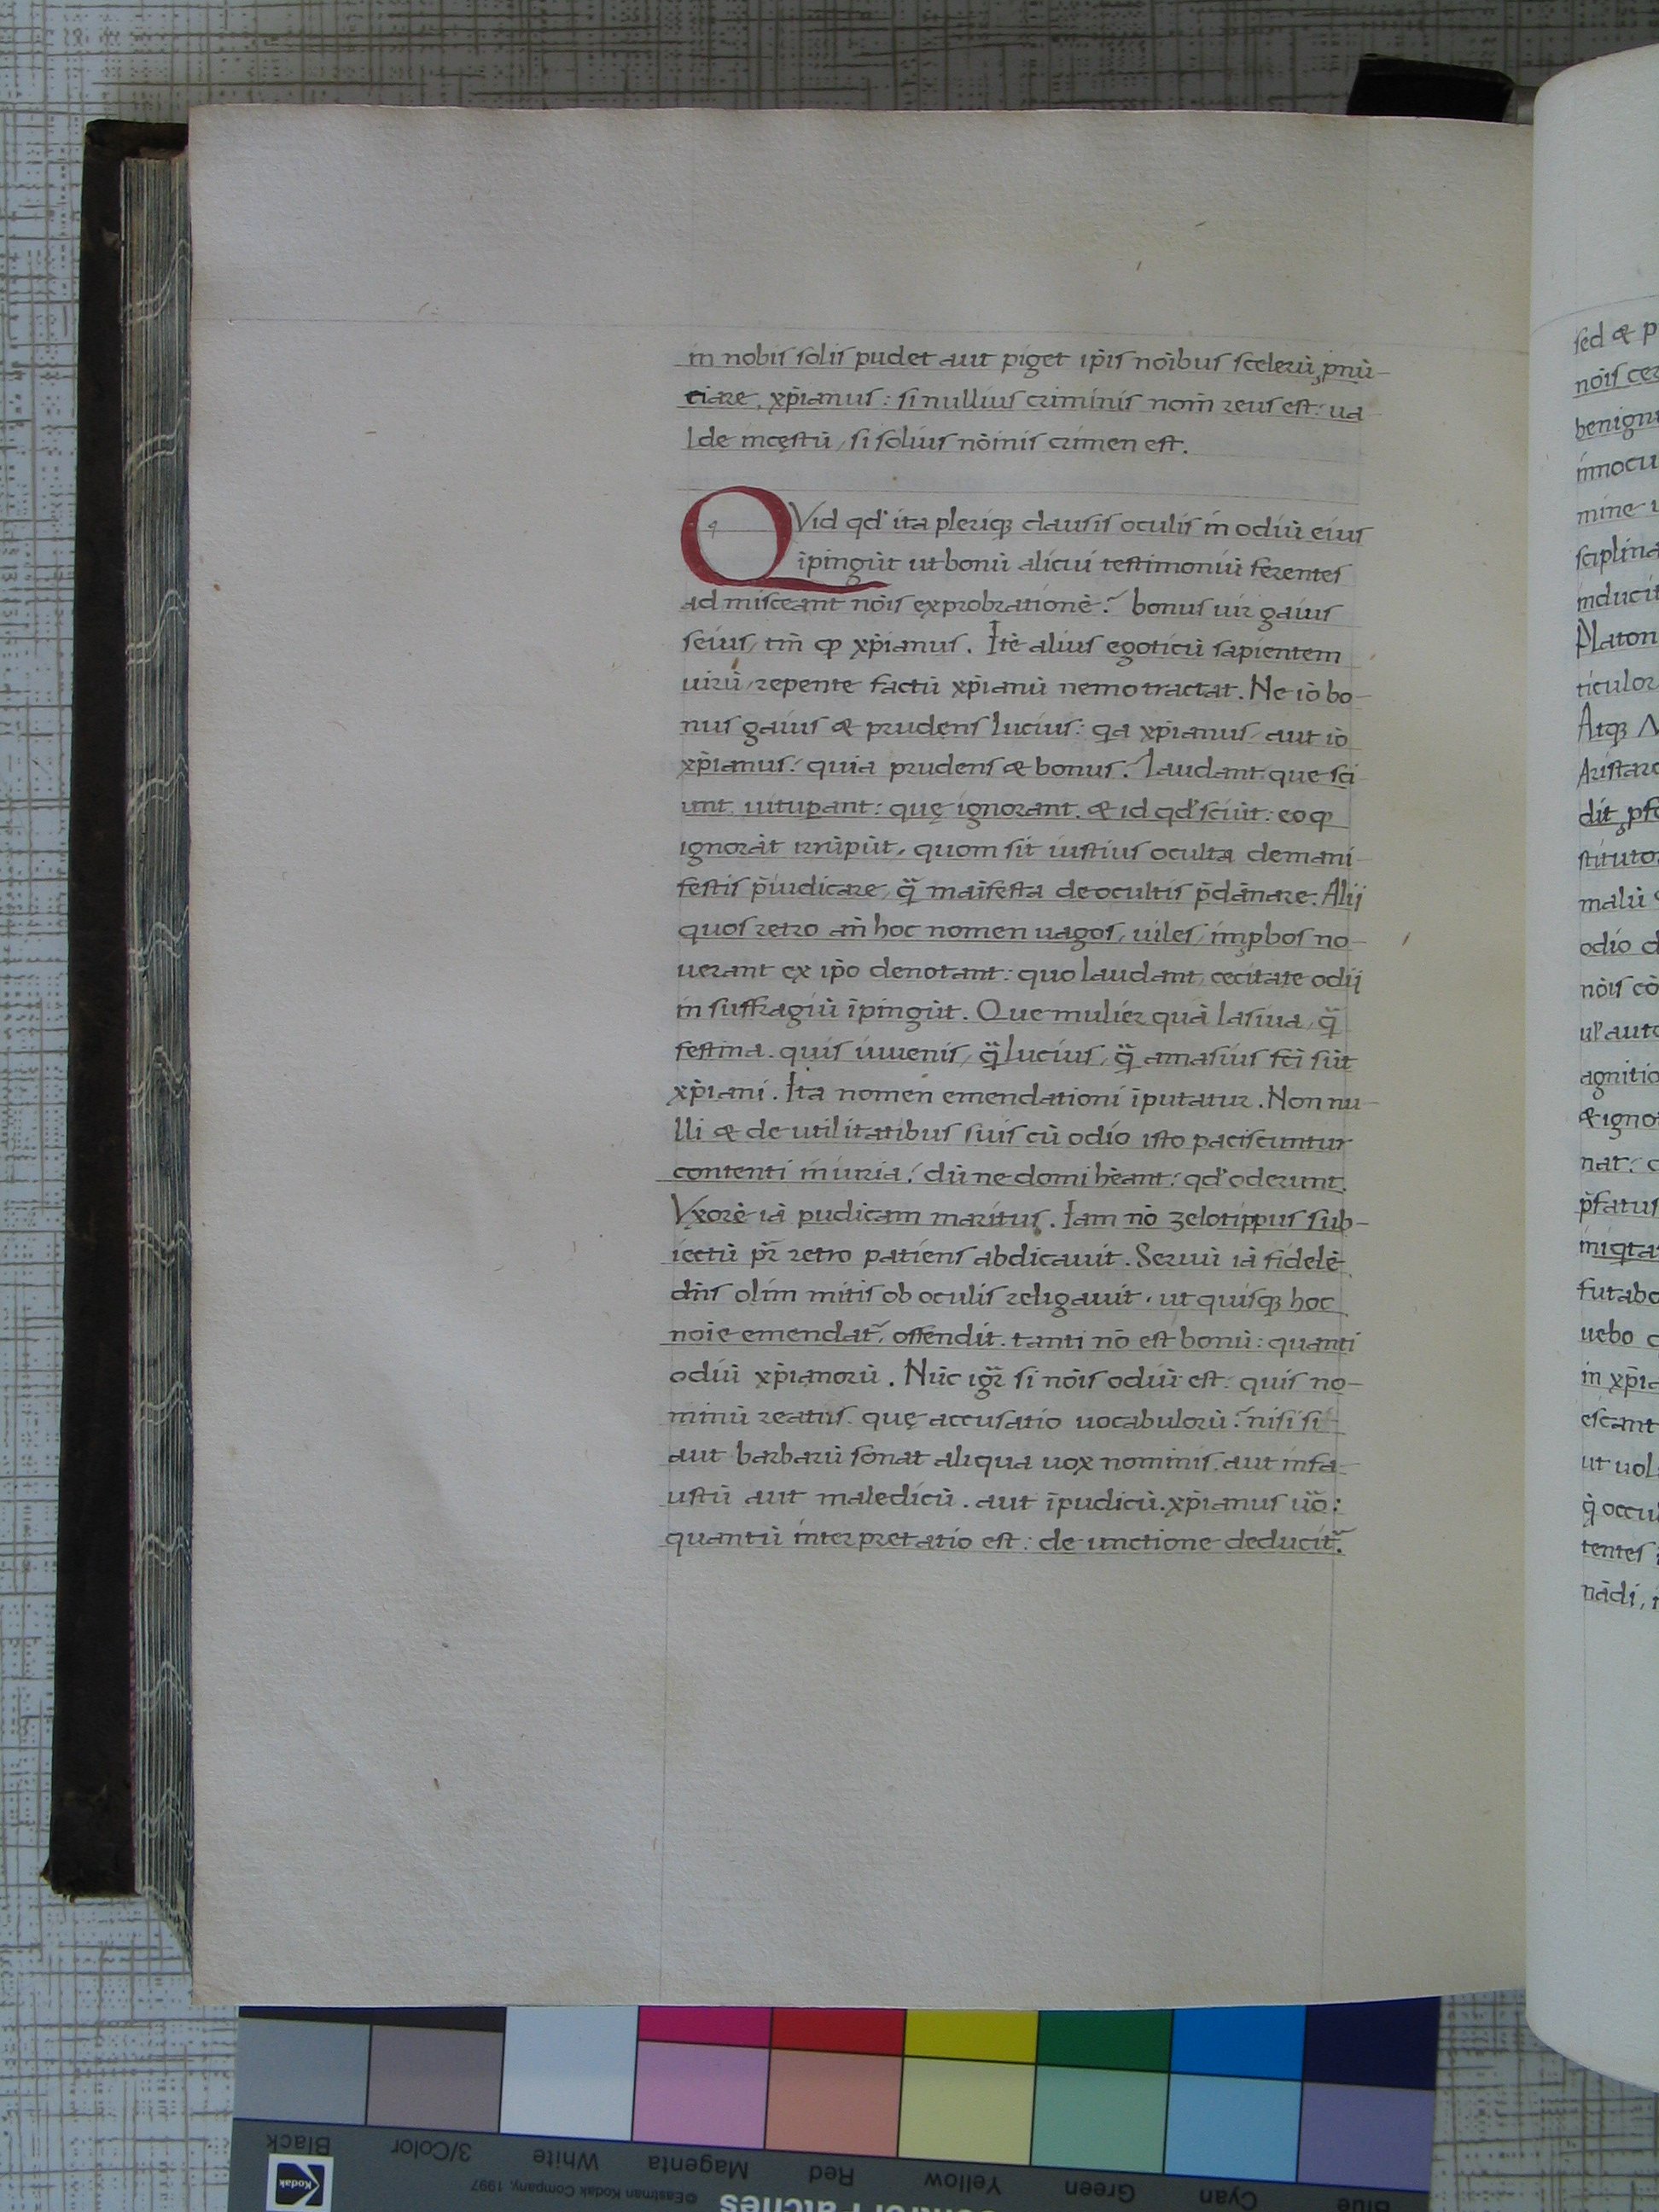 in nobis solis pudet aut piget ip̄is nōibus scelerū ꝓnū-
ciare. xp̄ianus: si nullius criminis nom̄ reus est: ua
lde incęstū, si solius nōinis crimen est.
QVid qd' ita pleriqꝫ clausis oculis in odiū eius
īpingūt ut bonū alicui testimoniū ferentes
ad misceant nōis exprobrationē? bonus uir gaius
seius, tm̄ ꝙ xp̄ianus. Itē alius ego ticū sapientem
uirū, repente factū xp̄ianū nemo tractat. Ne iō bo-
nus gaius & prudens lucius: qa xp̄ianus, aut iō
xp̄ianus: quia prudens & bonus. laudant que sci
unt. uituꝑant: quę ignorant. & id qd' sciūt: eo ꝙ
ignorāt irrūpūt, quom sit iustius oculta de mani-
festis p̄iudicare, q̈̄ maīfesta de ocultis p̄dānare. Alij
quos retro an̄ hoc nomen uagos, uiles, imꝓbos no-
uerant ex ip̄o denotant: quo laudant, cecitate odij
in suffragiū īpingūt. Que mulier quā lasiua, q̈̄
festina. quis iuuenis, q̈̄ lucius, q̈̄ amasius fc̄i sūt
xp̄iani. Ita nomen emendationi īputatur. Non nu-
lli & de utilitatibus suis cū odio isto paciscuntur
contenti iniuria: dū ne domi hēant: qd' oderunt.
Vxorē iā pudicam maritus. Iam nō zelotippus sub-
iectū pr̄ retro patiens abdicauit. Seruū iā fidelē
dn̄s olim mitis ob oculis religauit. ut quisqꝫ hoc
noīe emendat᷑, offendit. tanti nō est bonū: quanti
odiū xp̄ianorū. Nūc igr̄ si nōis odiū est: quis no-
minū reatus. quę accusatio uocabulorū? nisi si
aut barbarū sonat aliqua uox nominis. aut infa-
ustū aut maledicū. aut īpudicū. xp̄ianus uō:
quantū interpretatio est: de unctione deducit᷑.
sed & p
nōis cer
benign
innocu
mine
sciplina
inducit
Platon
ticulor
Atqꝫ
Aristarc
dit
stituto
malū
odio
nōis cō
ul' aut
agnitio
& igno
nat:
p̄fatus
futabo
uebo
in xp̄ia
escant
ut uol
occul
tentes
nādi,
Black
3/Color
White
Magenta
Red
Yellow
Green
Cyan
Blue
Kodak
©Eastman Kodak Company, 1997
Patches